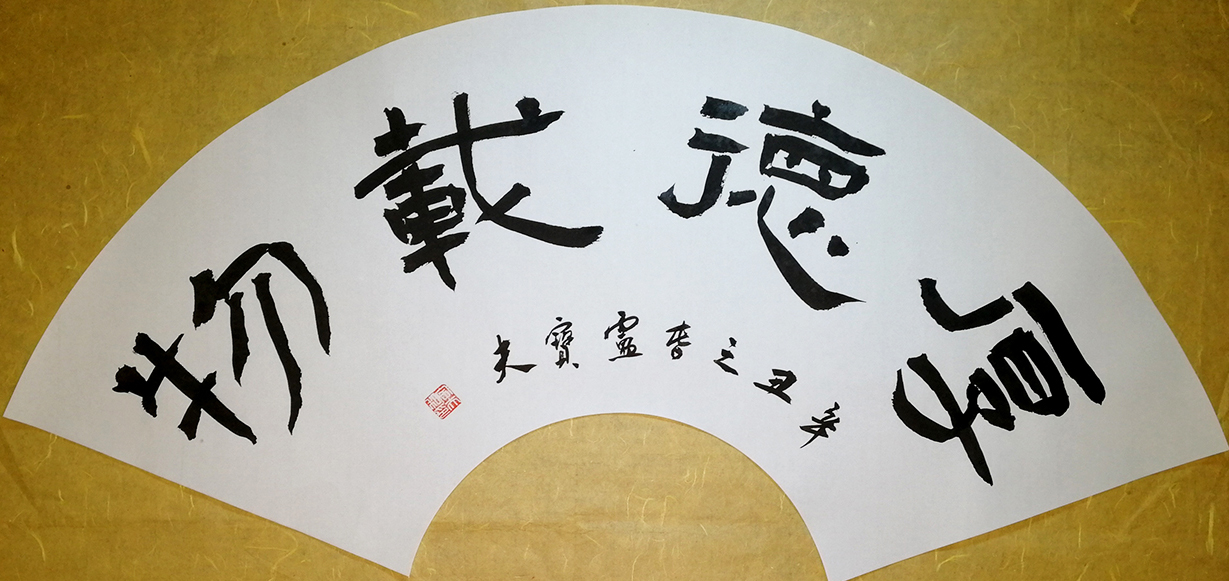 厚德載物
辛丑之春靈寶夫